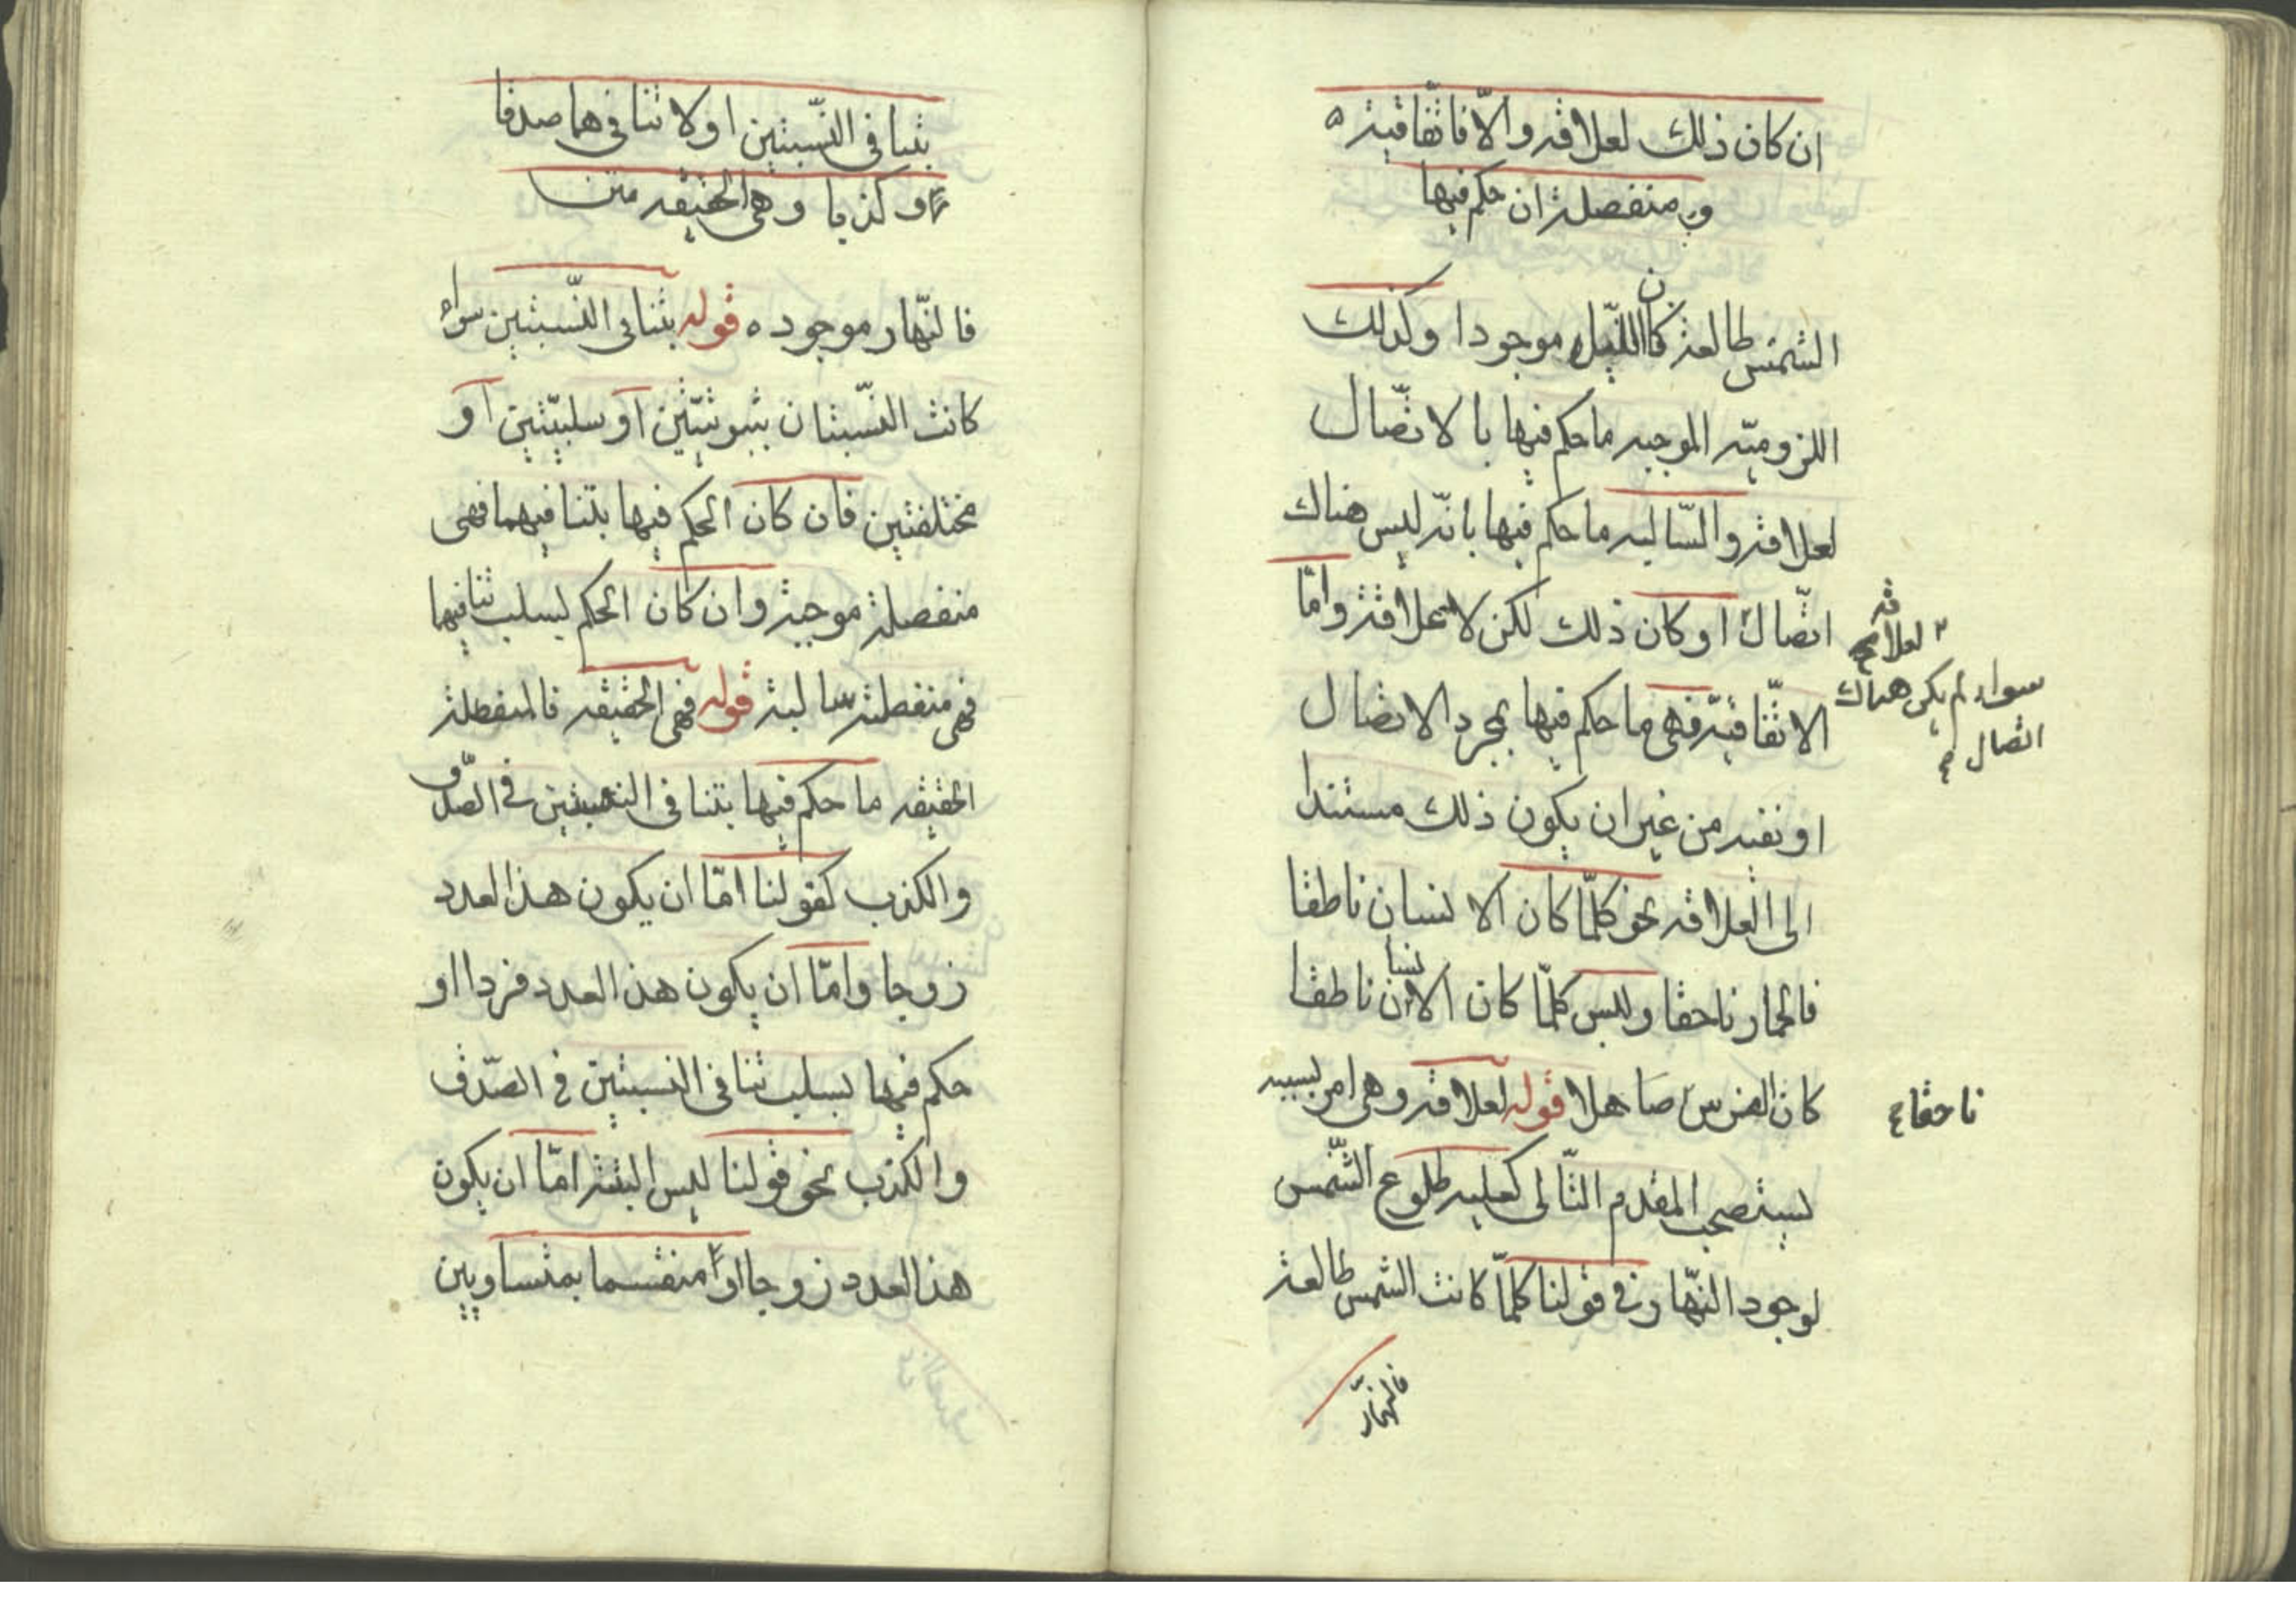 ان كان ذلك لعلاقة والا فاتفاقية ه
و منفصلة ان حكم فيها
الشمس طالعة كان الليل موجودا وكذلك
اللزوميّه الموجبه ما حكم فيها بالاتّصال
لعلاقة والسّالبه ما حكم فيها بانّه ليس هناك
اتّصال او كان ذلك لكن لا لعلاقة وامّا
لعلاقه
سواء لم يكن هناك
اتصال
الاتّفاقيّة فهى ما حكم فيها بمجرد الاتصال
او نفيه من غير ان يكون ذلك مستندا
الى العلاقه نحو كلّما كان الانسان ناطقا
فالحمار ناحقا وليس كلّما كان الانسان ناطقا
كان الفرس صاهلا قوله لعلاقة وهى امر بسببه
ناحقا
يستصحب المقدم التّالى كعليه طلوع الشّمس
لوجود النّهار فى قولنا كلّما كانت الشمس طالعة
فالنهار
بتنافى النّسبتين او لا تنافيهما صدقا
و كذبا وهى الحقيقه متن
فالنّهار موجود ه قوله بتنافى النّسبتين سواء
كانت النّسبتان ثبوتيّتين او سلبيّتين او
مختلفتين فان كان الحكم فيها بتنافيهما فهى
منفصلة موجبة وان كان الحكم بسلب تنافيهما
فهى منفصلة سالبة قوله فهى الحقيقه فالمنفصلة
الحقيقه ما حكم فيها بتنافى النسبتين فى الصّدق
والكذب كقولنا امّا ان يكون هذا العدد
زوجا وامّا ان يكون هذا العدد فردا او
حكم فيها بسلب تنافى النسبتين فى الصّدق
والكذب نحو قولنا ليس البتة امّا ان يكون
هذا العدد زوجا او منقسما بمتساويين